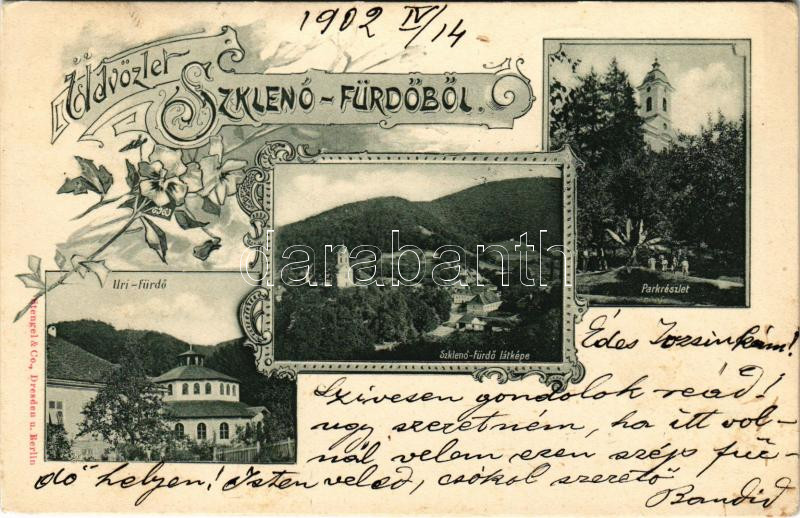 1902 IV/14
Üdvözlet
SZKLENÓ-FÜRDŐBŐL.
6963
Uri-fürdő
Parkrészlet
Szklenó-fürdő látképe
darabanth
Stengel & Co., Dresden u. Berlin
Édes Jozsinkám!
Szívesen gondolok reád!
ugy szeretném, ha itt vol-
nál velem ezen szép für-
dő helyen! Isten veled, csókol szerető
Bandid